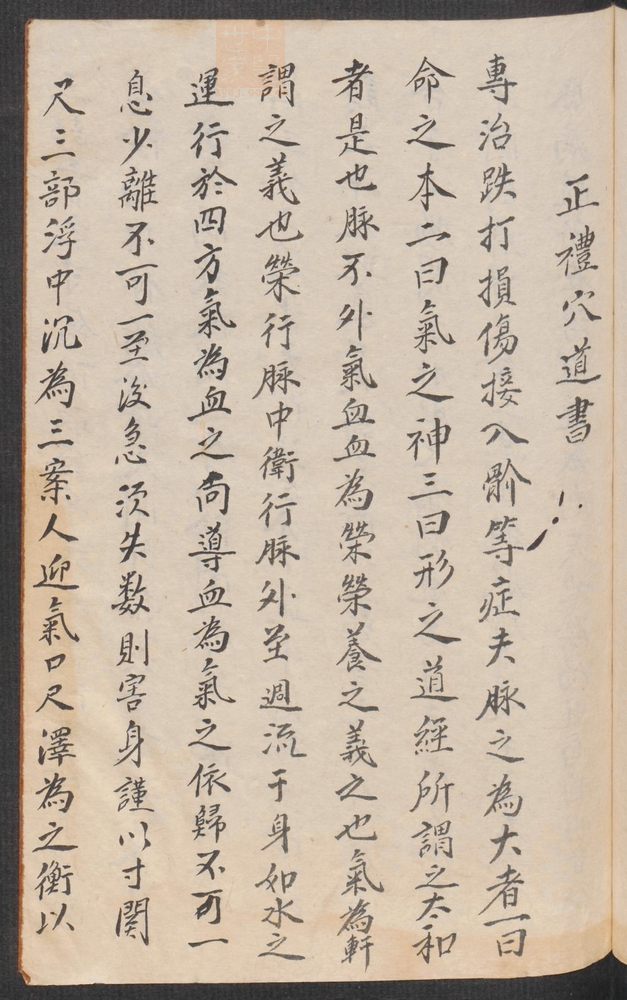 正禮穴道書
專治跌打損傷接入骱等症夫脉之為大者一曰
命之本二曰氣之神三曰形之道經所謂之太和
者是也脉不外氣血血為榮榮養之義之也氣為軒
謂之義也榮行脉中衛行脉外至週流于身如水之
運行於四方氣為血之向導血為氣之依歸不可一
息少離不可一至汝急須失数則害身謹以寸関
尺三部浮中沉為三案人迎氣口尺澤為之衡以